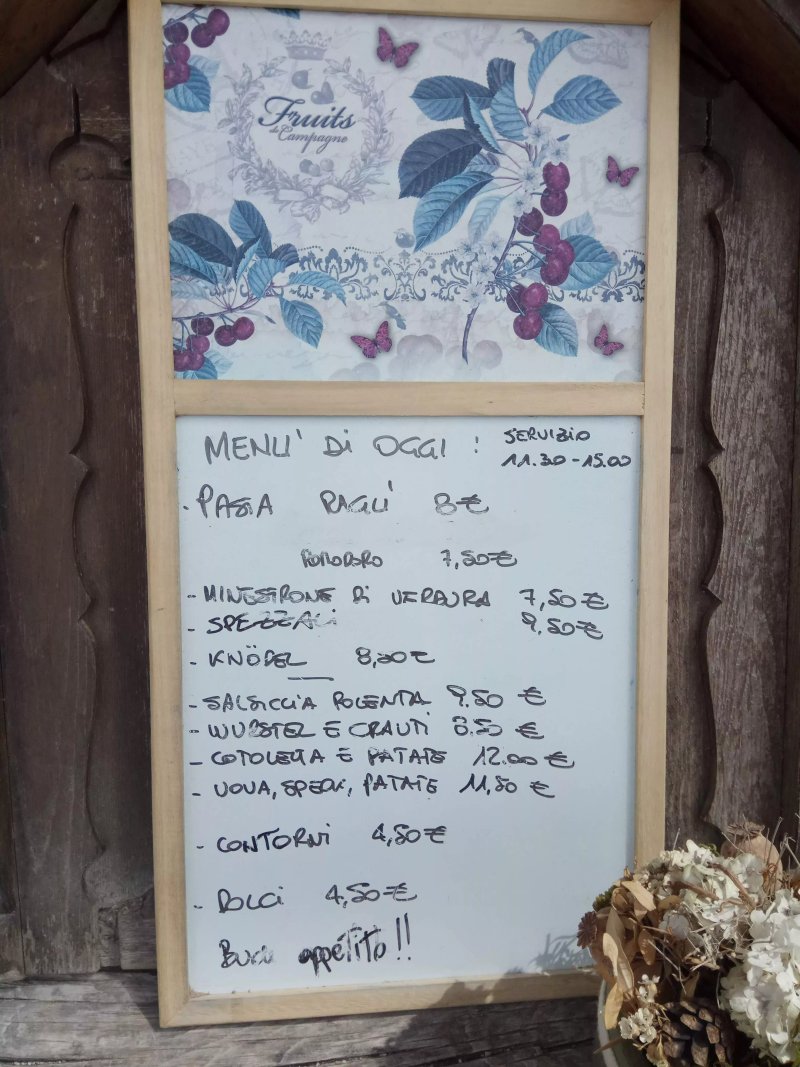 Fruits
de Campagne
MENU' DI OGGI : SERVIZIO
11.30-15.00
- PASTA RAGU' 8€
POMODORO 7,50€
- MINESTRONE DI VERDURA 7,50€
- SPEZZALI 9.50€
- KNÖDEL 8,50€
- SALSICCIA POLENTA 9.50 €
- WURSTEL E CRAUTI 8.50 €
- COTOLETTA E PATATE 12.00€
- UOVA, SPECK, PATATE 11,50 €
- CONTORNI 4,50€
- DOLCI 4,50€
Buon appétito!!